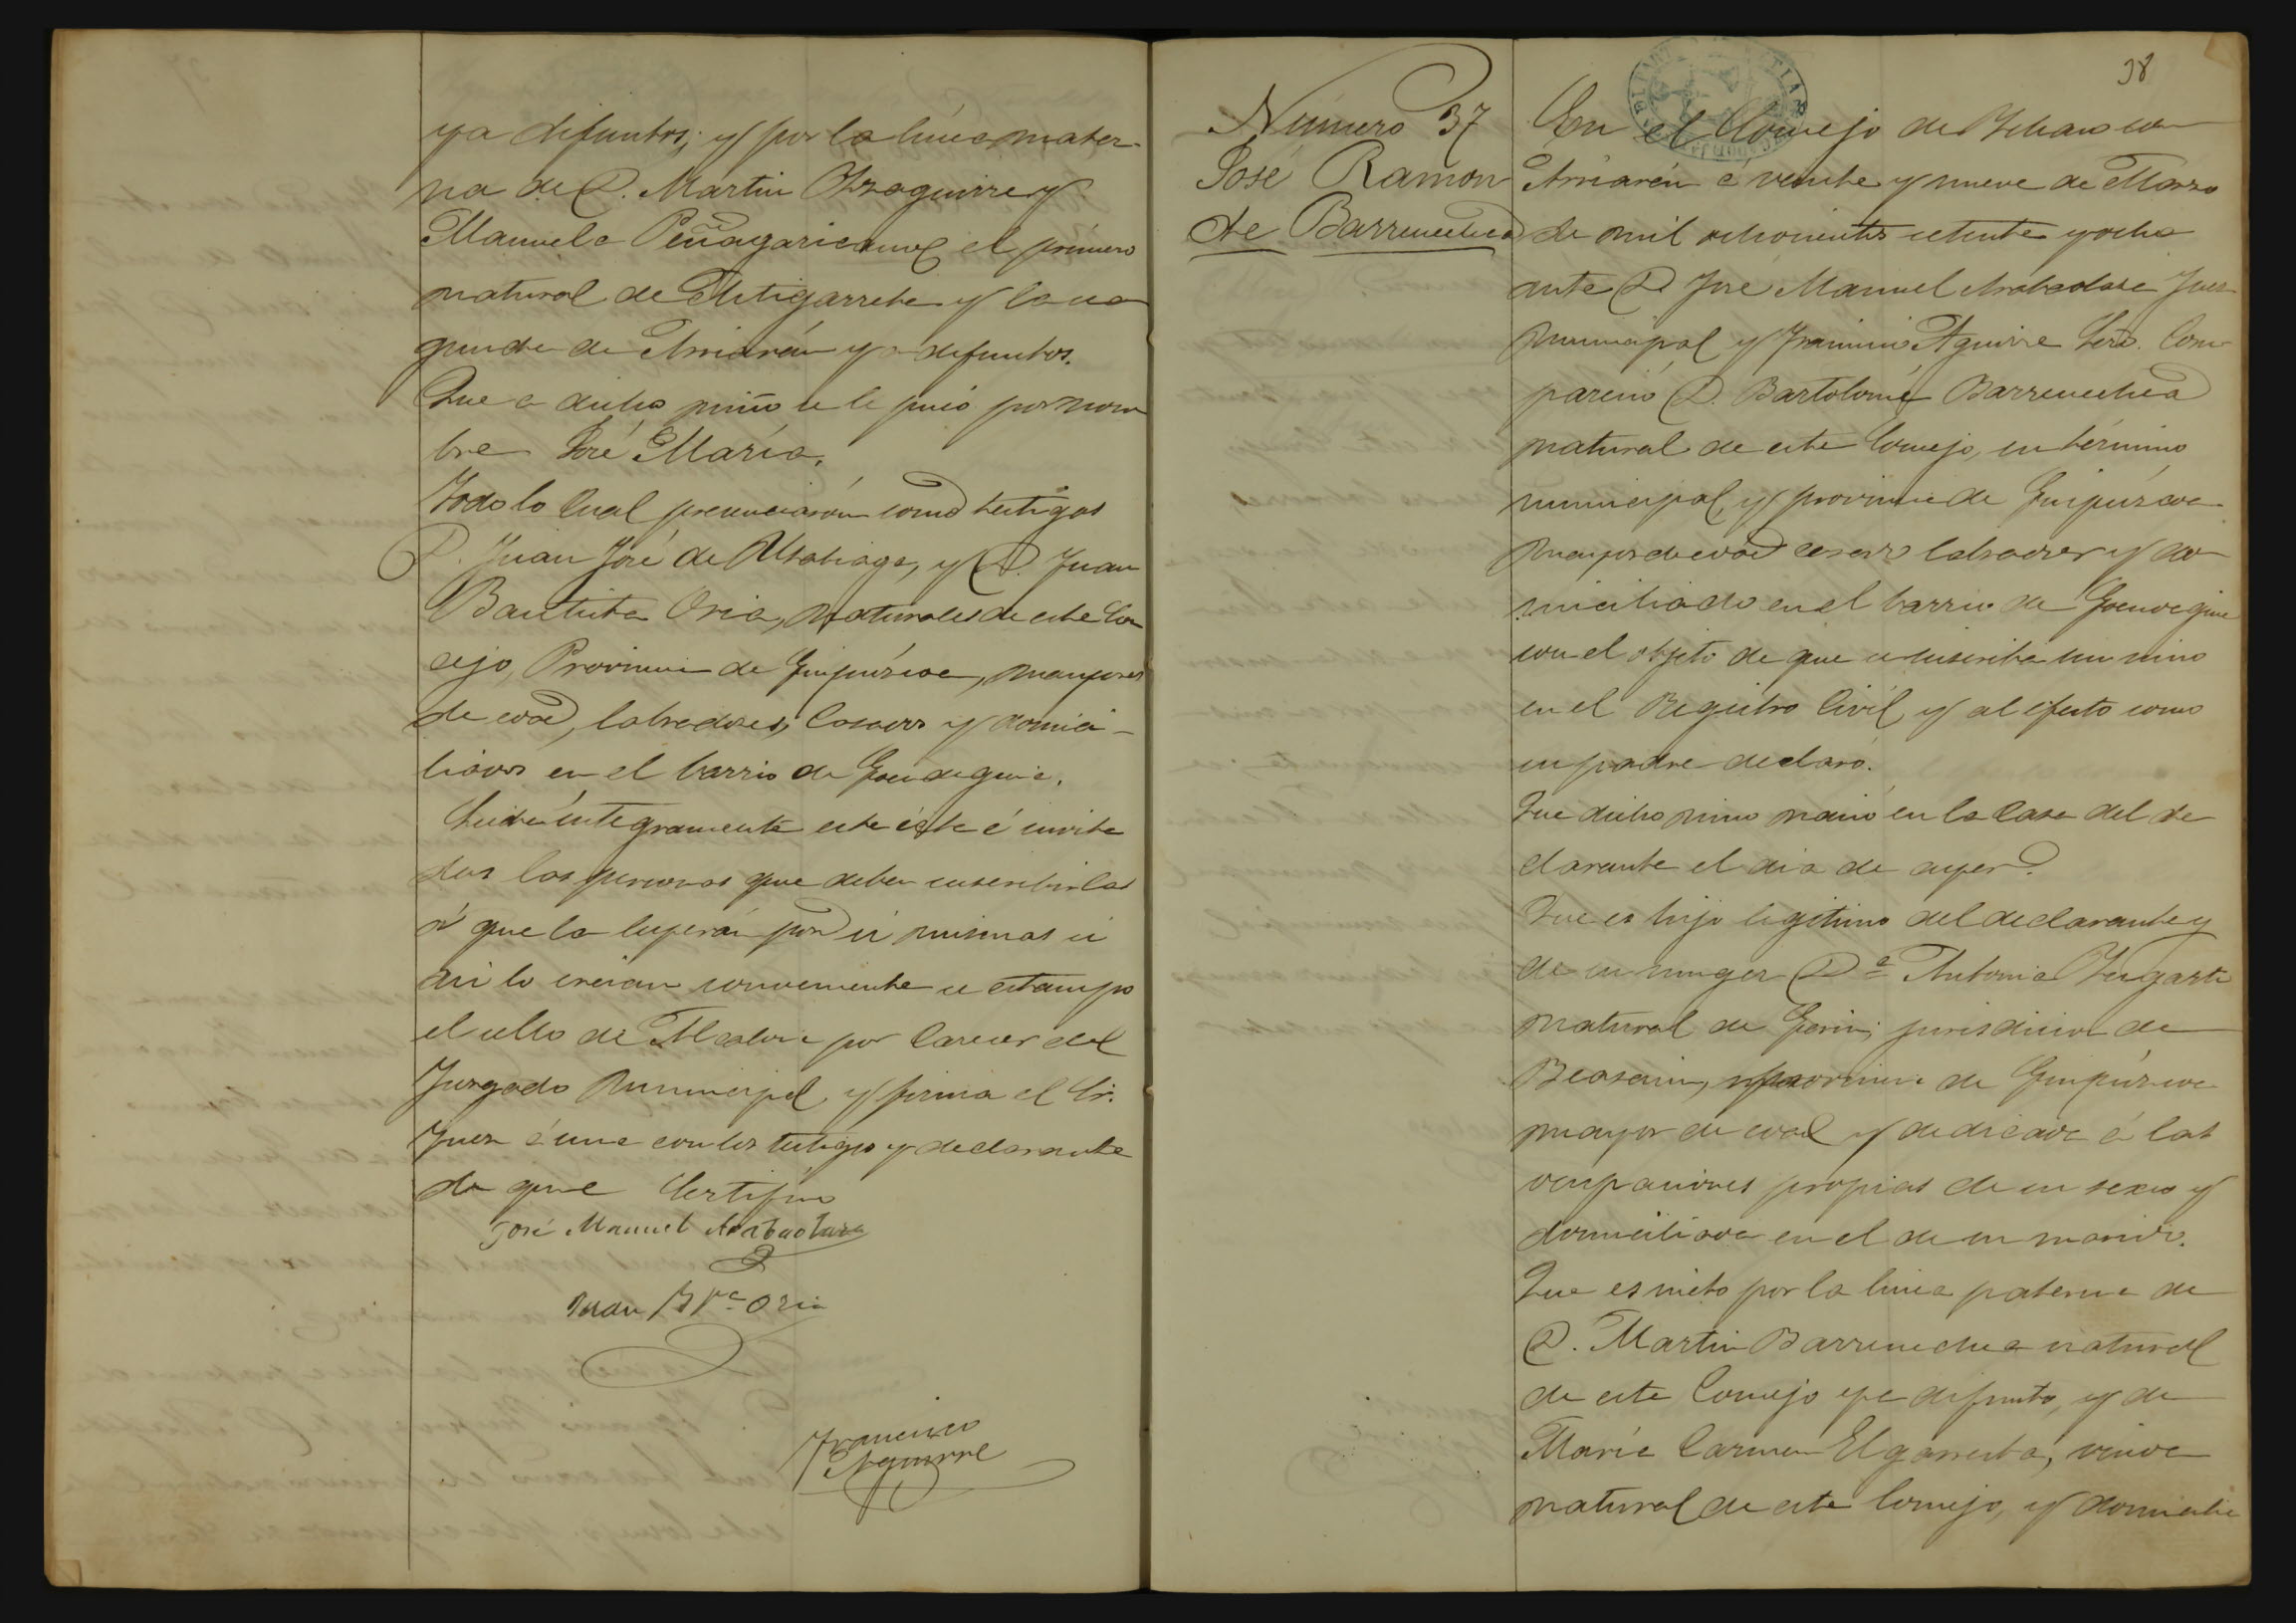 ya difuntos; y por la línea mater-
na de D. Martin Otzaguirre y
Manuela Peñagaricano, el primero
natural de Astigarreta y la se
gunda de Arriarán ya difuntos.
Que a dicho niño se le puso por nom
bre José María.
Todo lo Cual presenciaron como testigos
D. Juan José de Usabiaga, y D. Juan
Bautista Oria, naturales de este Con
cejo, Provincia de Guipúzcoa, mayores
de edad, labradores, Casados y domici-
liados en el barrio de
Leida integramente este acta é invita
das las personas que deben suscribirlas
á que la leyeran por si mismas si
asi lo creian conveniente se estampo
el sello de Alcaldia por Carecer del
Juzgado Municipal, y firma el Sr.
Juez é una con los testigos y declarante
de que Certifico
José Manuel Arabaolaza
Juan Bta Oria
Francisco
Aguirre
38
Número 37
José Ramon
de Barrenechea
En el Concejo de Ichaso con
Arriarán á veinte y nueve de Marzo
de mil ochocientos setenta y ocho
ante D. José Manuel Arabaolaza Juez
municipal y Francisco Aguirre Srio. Com
pareció D. Bartolomé Barrenechea
natural de este Concejo, su término
municipal, y provincia de Guipúzcoa
mayor de edad casado labrador y do
miciliado en el barrio de
con el objeto de que se inscriba un niño
en el Registro Civil, y al efecto como
su padre declaró.
Que dicho niño nació en la Casa del de
clarante el dia de ayer.
Que es hijo legitimo del declarante y
de su muger Da Antonia
natural de Garin, jurisdicion de
Beasain, provincia de Guipúzcoa
mayor de edad y dedicada á las
ocupaciones propias de su sexo y
domiciliada en el de su marido.
Que es nieto por la linea paterna de
D. Martin Barrenechea natural
de este Concejo ya difunto, y de
María Carmen Elgarresta, viuda
natural de este Concejo, y domicilia